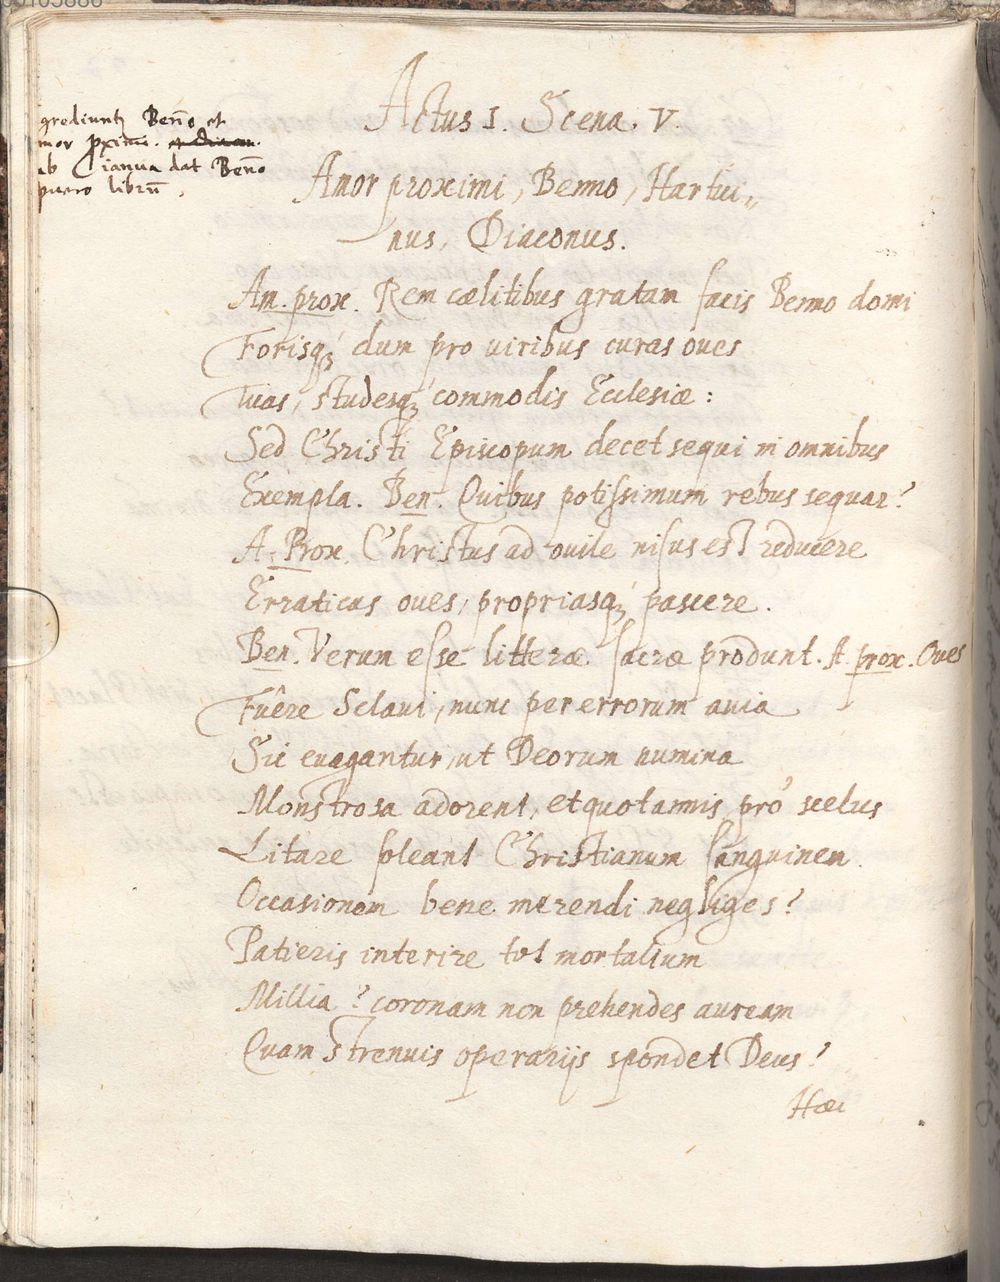 Actus I. Scena. V.
grediuntꝫ Beño et
mor pximi. et Diacon.
ab ianua dat Beño
puero librũ.
Amor proximi, Benno, Hartui„
nus, Diaconus.
Am. prox. Rem cælitibus gratam facis Benno domi
Forisqꝫ dum pro viribus curas oues
Tuas, studesqꝫ commodis Ecclesiæ:
Sed Christi Episcopum decet sequi in omnibus
Exempla. Ben. Quibus potissimum rebus sequar?
A. Prox. Christus ad ouile nisus est reducere
Erraticas oues, propriasqꝫ pascere.
Ben. Verum esse litteræ sacræ produnt. A. prox. Oues
Fuêre Sclaui, nunc per errorum auia
Sic euagantur, ut Deorum numina
Monstrosa adorent, et quotannis pro scelus
Litare soleant Christianum sanguinem.
Occasionem bene merendi negliges?
Patieris interire tot mortalium
Millia? coronam non prehendes auream
Quam strenuis operarijs spondet Deus?
Hæc